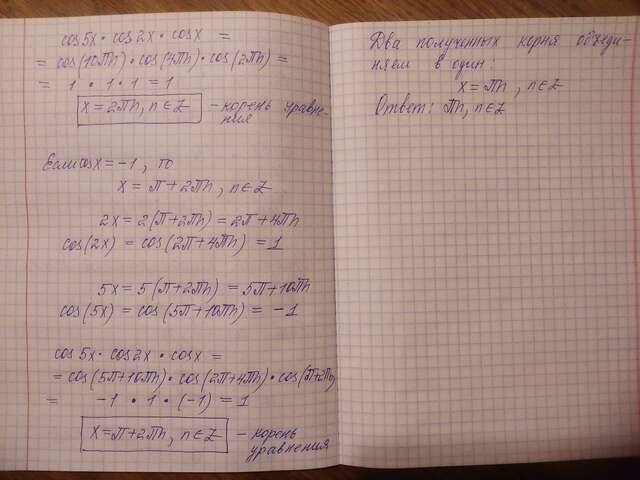 cos5x · cos2x · cosx =
= cos(10πn) · cos(4πn) · cos(2πn) =
= 1 · 1 · 1 = 1
x = 2πn, n ∈ Z – корень уравне-
ния
Если cosx = -1, то
x = π + 2πn, n ∈ Z
2x = 2(π + 2πn) = 2π + 4πn
cos(2x) = cos(2π + 4πn) = 1
5x = 5(π + 2πn) = 5π + 10πn
cos(5x) = cos(5π + 10πn) = -1
cos5x · cos2x · cosx =
= cos(5π + 10πn) · cos(2π + 4πn) · cos(π + 2πn)
= -1 · 1 · (-1) = 1
x = π + 2πn, n ∈ Z – корень
уравнения
Два полученных корня объеди-
няем в один:
x = πn, n ∈ Z
Ответ: πn, n ∈ Z